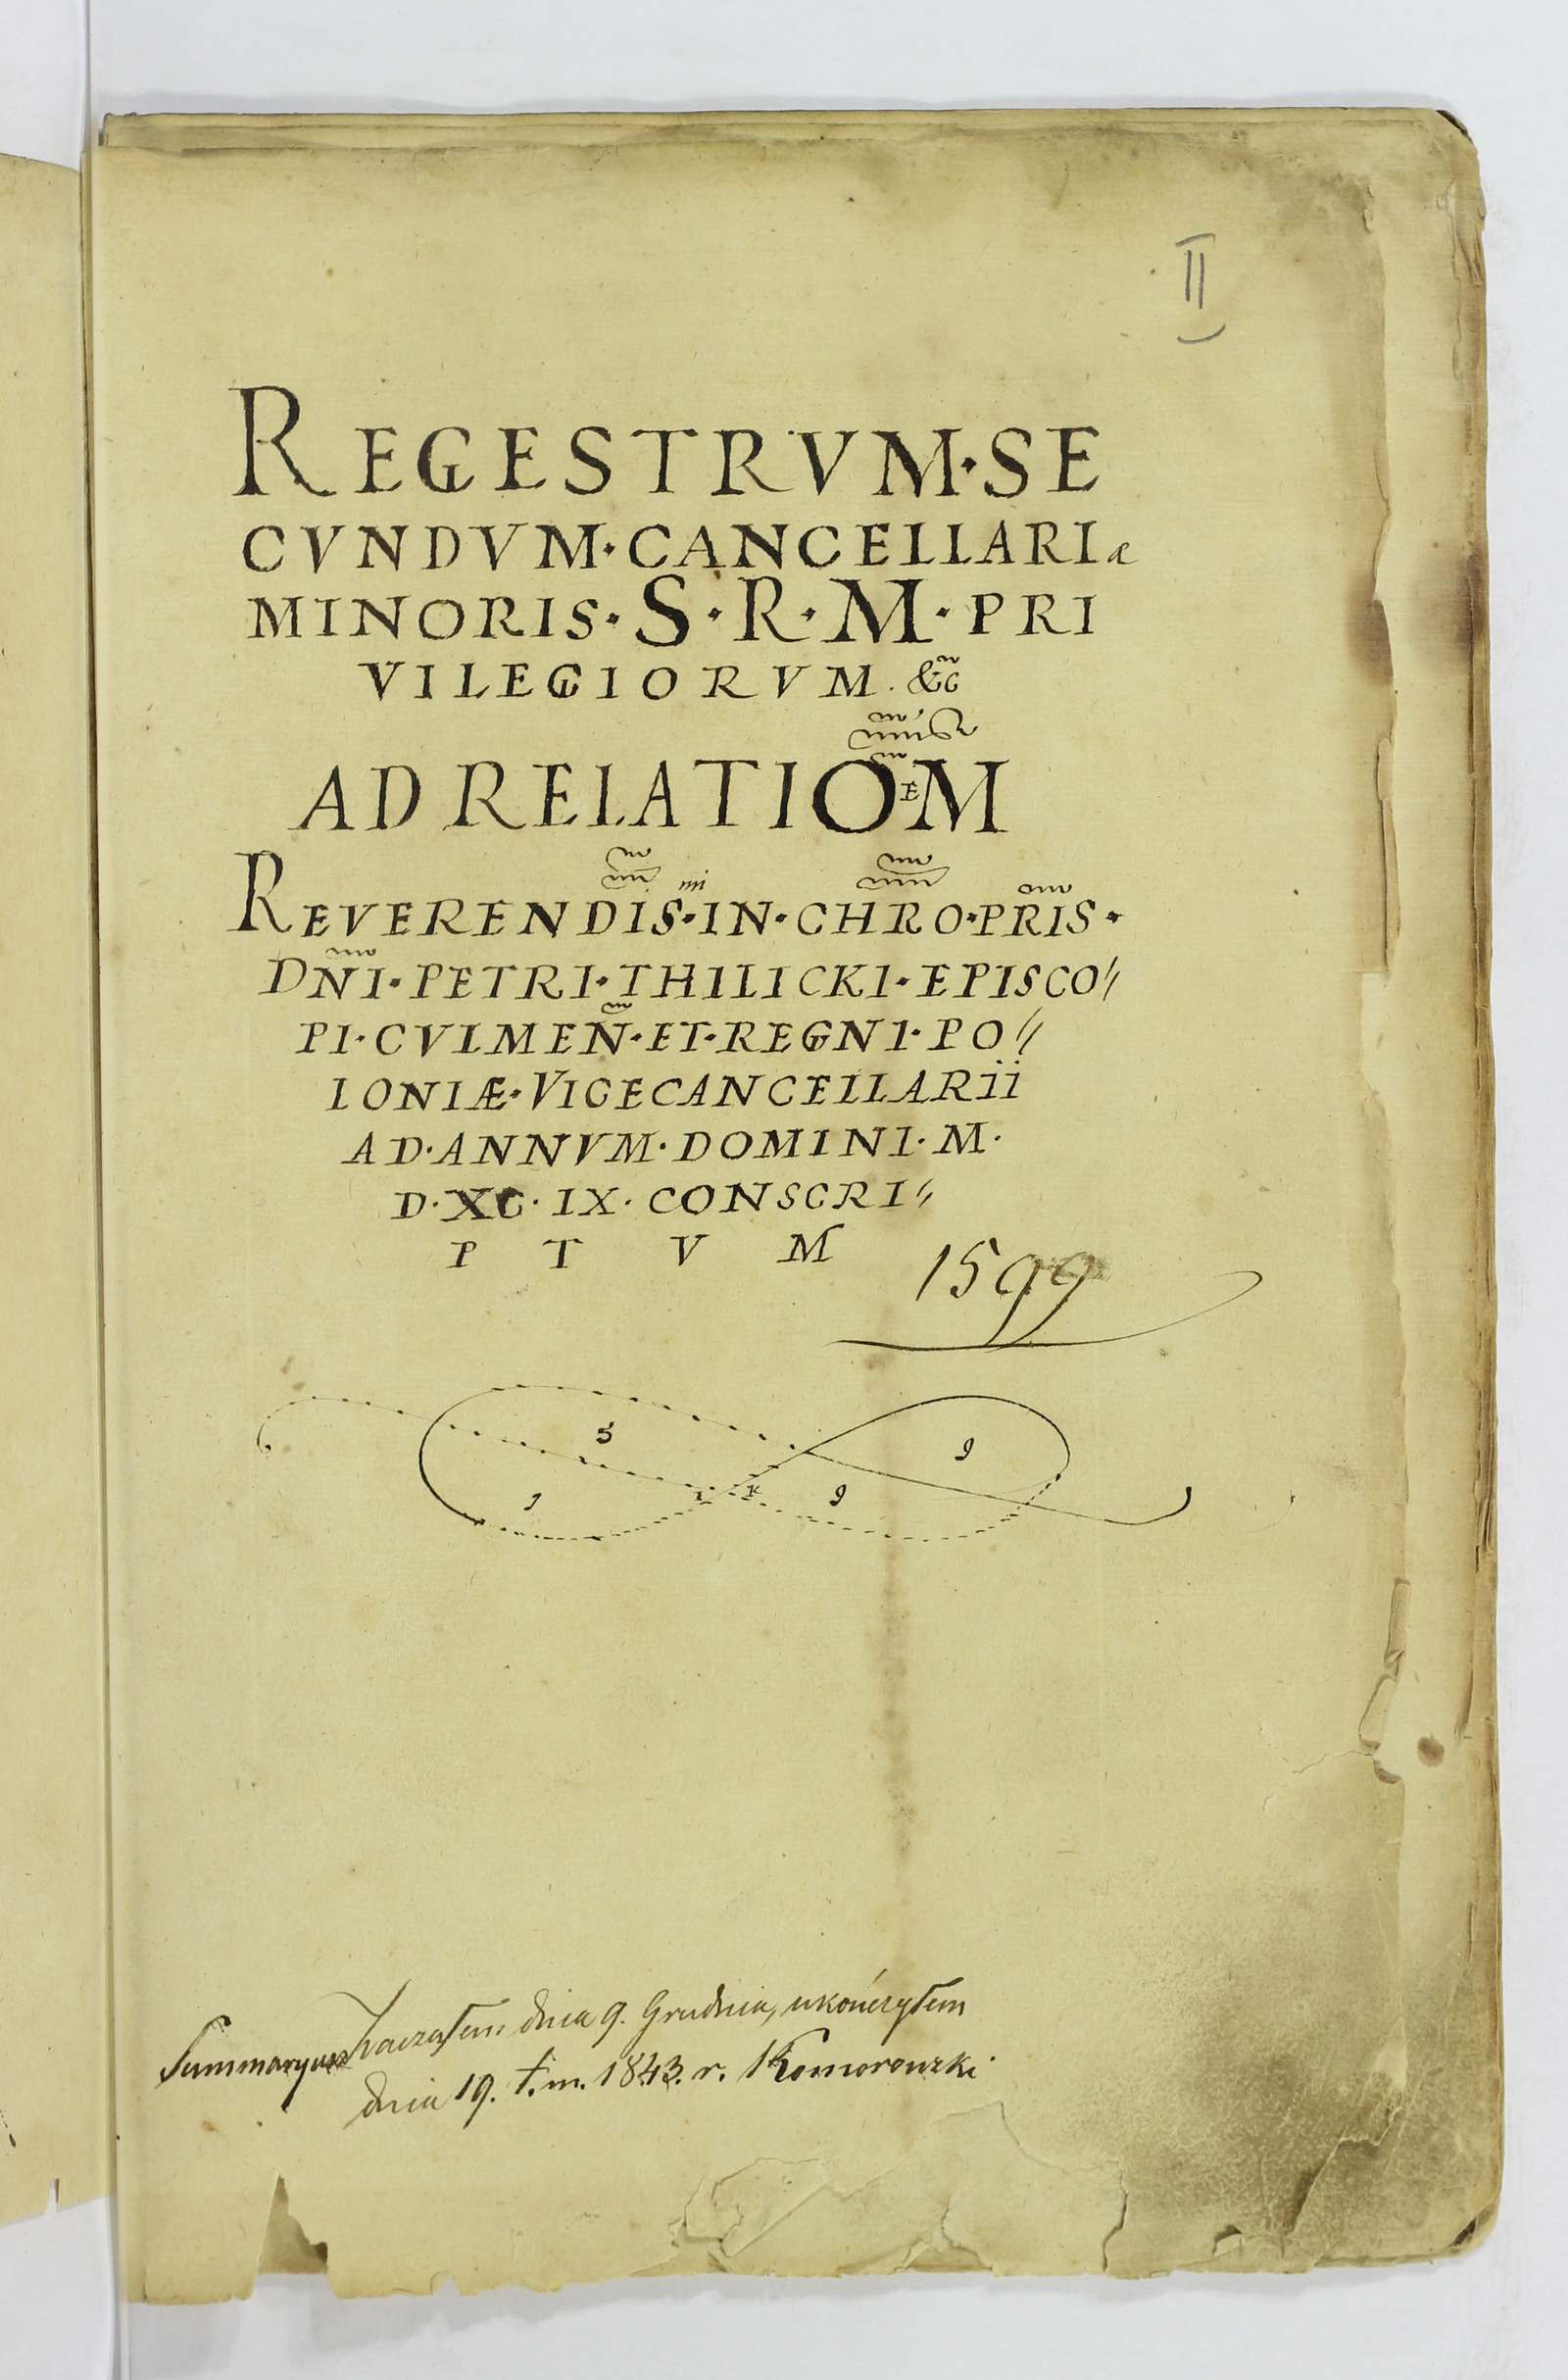 II
REGESTRVM·SE
CVNDVM·CANCELLARIæ
MINORIS·S·R·M·PRI
VILEGIORVM·&c̃
AD RELATIOEM
REVERENDISmi·IN·CHRO·PRIS·
DÑI·PETRI·THILICKI·EPISCO//
PI·CVLMEÑ·ET·REGNI·PO//
LONIÆ·VICECANCELLARii
AD·ANNVM·DOMINI·M·
D·XC·IX·CONSCRI//
PTVM
1599
5 9
1 I K 9
Summaryusz Zacząłem dnia 9. Grudnia, ukończyłem
dnia 19. t.m. 1843. r. Komorowski